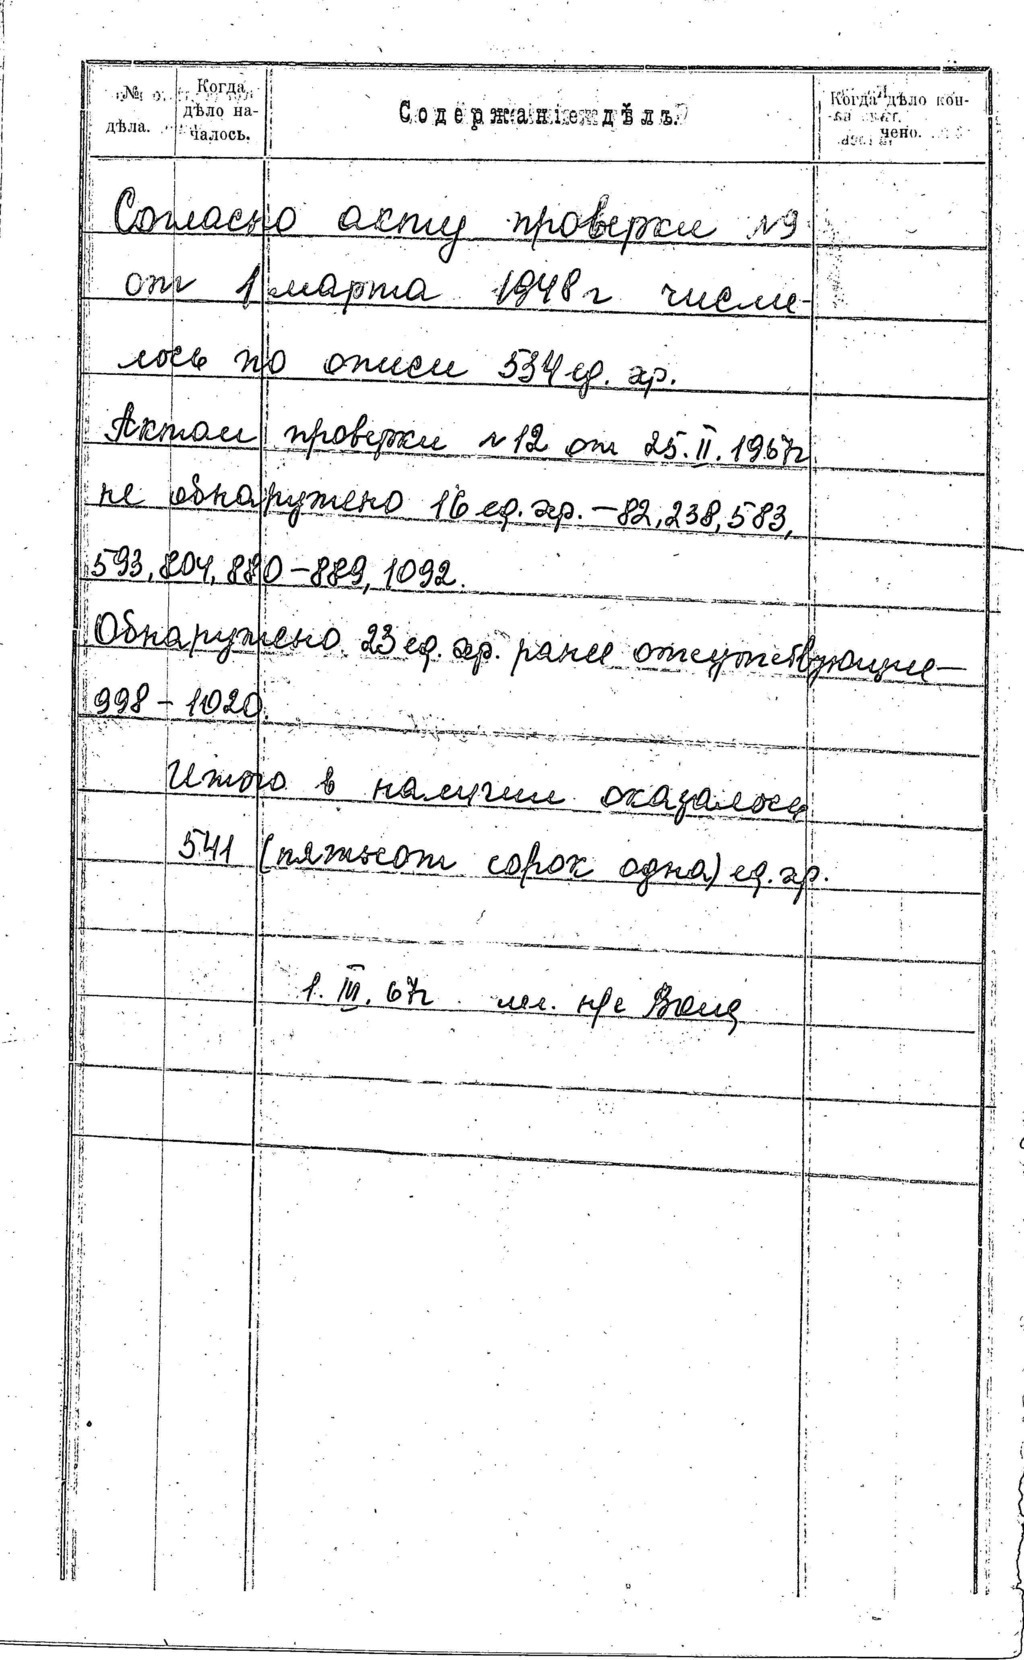 № дѣла.
Когда дѣло на-
чалось.
Содержаніе дѣлъ.
Когда дѣло кон-
чено.
Согласно акту проверки №9
от 1 марта 1948 г числи-
лось по описи 534 ед. хр.
Актом проверки №12 от 25.II.1967г.
не обнаружено 16 ед. хр. – 82, 238, 583,
593, 804, 880 – 889, 1092.
Обнаружено 23 ед. хр. ранее отсутствующие –
998 – 1020.
Итого в наличии оказалось
541 (пятьсот сорок одна) ед. хр.
1. III. 67г. мл. н/с